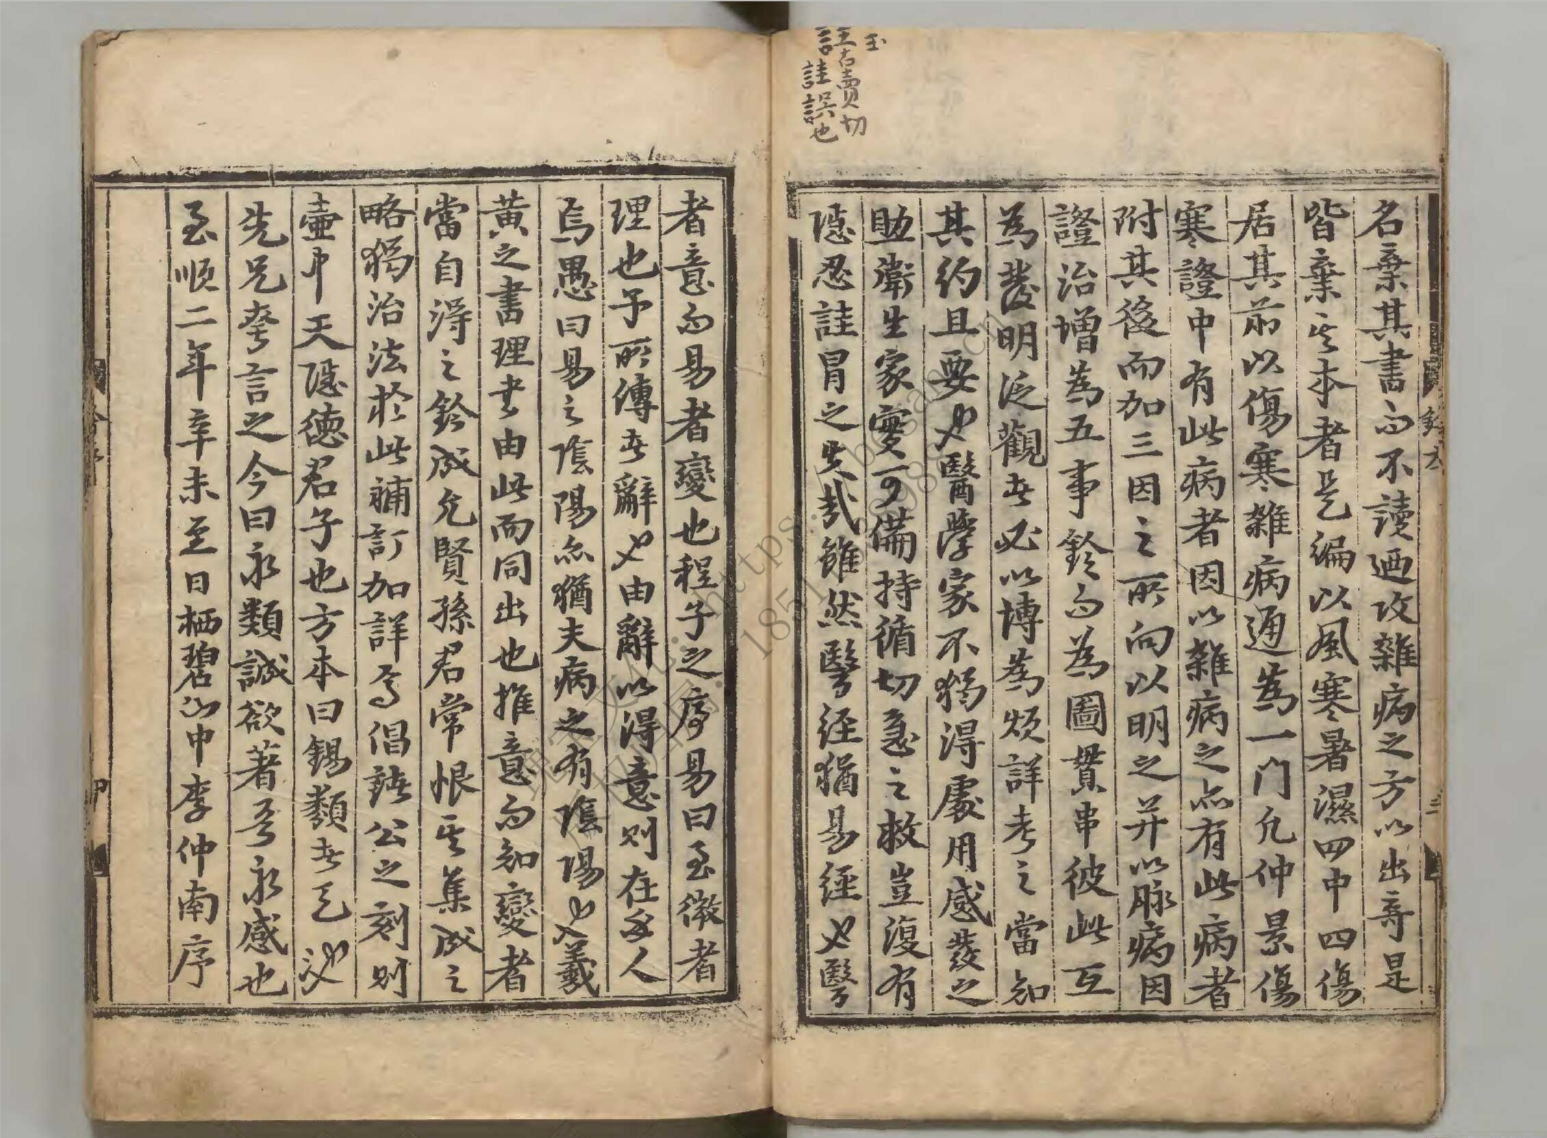 玉
圭古賣切
言註誤也
名棄其書而不讀迺攻雜病之方以出奇是
皆棄其本者是編以風寒暑濕四中四傷
居其前以傷寒雜病通為一門允仲景傷
寒證中有此病者因以雜病之亦有此病者
附其後而加三因之所向以明之并以脉病因
證治增為五事鈐而為圖貫串彼此互
為發明泛觀者必以博為煩詳考之當知
其約且要也醫學家不獨得處用感發之
助衛生家寔可備持循切急之救豈復有
隱忍詿冒之失哉雖然醫經猶易經也醫
者意而易者變也程子之序易曰至微者
理也予所傳者辭也由辭以得意則在乎人
焉愚曰易之陰陽亦猶夫病之有陰陽也羲
黃之書理者由此而同出也推意而知變者
當自得之鈐成允賢孫君常恨其集成之
略獨治法於此補訂加詳焉倡鋟公之刻則
壷中天隱德君子也方本曰錫類者已迯
先兄孥言之今曰永類誠欲著吾永感也
至順二年辛未至日栖碧山中李仲南序